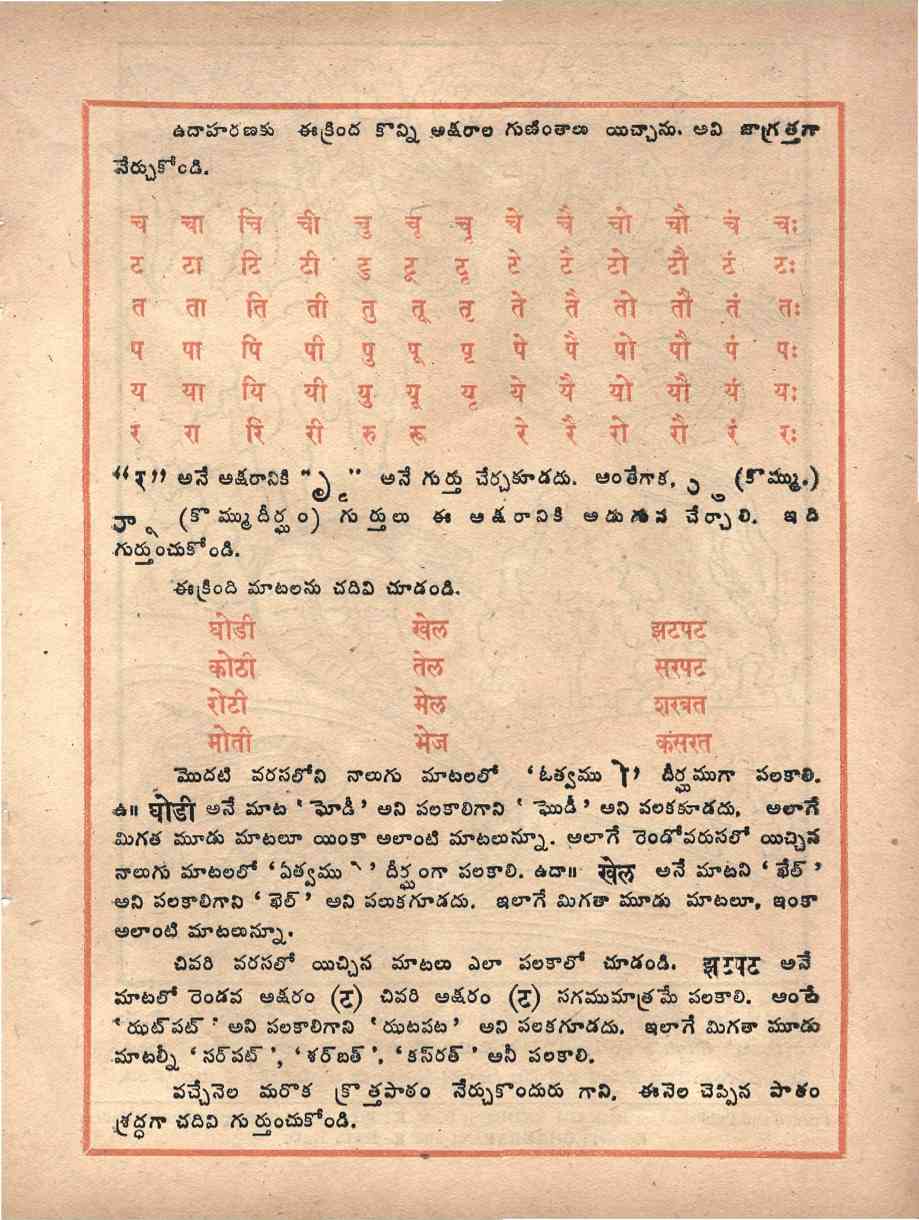 ఉదాహరణకు ఈక్రింద కొన్ని అక్షరాల గుణింతాలు యిచ్చాను. అవి జాగ్రత్తగా
నేర్చుకోండి.
च चा चि ची चु चू चृ चे चै चो चौ चं चः
ट टा टि टी टु टू टृ टे टै टो टौ टं टः
त ता ति ती तु तू तृ ते तै तो तौ तं तः
प पा पि पी पु पू पृ पे पै पो पौ पं पः
य या यि यी यु यू यृ ये यै यो यौ यं यः
र रा रि री रु रू रे रै रो रौ रं रः
“र” అనే అక్షరానికి “ృ” అనే గుర్తు చేర్చకూడదు. అంతేగాక, ు (కొమ్ము.)
ూ (కొమ్ముదీర్ఘం) గుర్తులు ఈ అక్షరానికి అడుగున చేర్చాలి. ఇది
గుర్తుంచుకోండి.
ఈక్రింది మాటలను చదివి చూడండి.
घोडी खेल झटपट
कोठी तेल सरपट
रोटी मेल शरबत
मोती भेज कंसरत
మొదటి వరసలోని నాలుగు మాటలలో ‘ఓత్వము ो’ దీర్ఘముగా పలకాలి.
ఉ॥ घोडी అనే మాట ‘ఘోడీ’ అని పలకాలిగాని ‘ఘొడీ’ అని పలకకూడదు. అలాగే
మిగత మూడు మాటలూ యింకా అలాంటి మాటలున్నూ. అలాగే రెండోవరుసలో యిచ్చిన
నాలుగు మాటలలో ‘ఏత్వము े’ దీర్ఘంగా పలకాలి. ఉదా॥ खेल అనే మాటని ‘ఖేల్’
అని పలకాలిగాని ‘ఖెల్’ అని పలుకగూడదు. ఇలాగే మిగతా మూడు మాటలూ, ఇంకా
అలాంటి మాటలున్నూ.
చివరి వరసలో యిచ్చిన మాటలు ఎలా పలకాలో చూడండి. झटपट అనే
మాటలో రెండవ అక్షరం (ट) చివరి అక్షరం (ट) సగముమాత్రమే పలకాలి. అంటే
‘ఝట్‌పట్’ అని పలకాలిగాని ‘ఝటపట’ అని పలకగూడదు. ఇలాగే మిగతా మూడు
మాటల్నీ ‘సర్‌పట్’, ‘శర్‌బత్’, ‘కస్‌రత్’ అనీ పలకాలి.
వచ్చేనెల మరొక క్రొత్తపాఠం నేర్చుకొందురు గాని, ఈనెల చెప్పిన పాఠం
శ్రద్ధగా చదివి గుర్తుంచుకోండి.